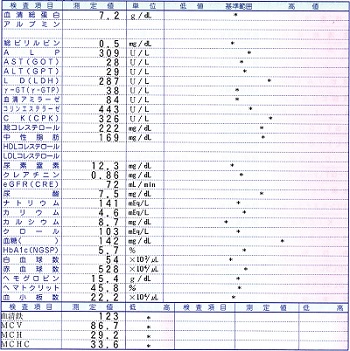 検査項目 測定値 単位 低値 基準範囲 高値
血清総蛋白 7.2 g/dL *
アルブミン
総ビリルビン 0.5 mg/dL *
ALP 309 U/L *
AST(GOT) 28 U/L *
ALT(GPT) 29 U/L *
LD(LDH) 287 U/L *
γ-GT(γ-GTP) 38 U/L *
血清アミラーゼ 84 U/L *
コリンエステラーゼ 243 U/L *
CK(CPK) 326 U/L *
総コレステロール 222 mg/dL *
中性脂肪 169 mg/dL *
HDLコレステロール
LDLコレステロール
尿素窒素 12.3 mg/dL *
クレアチニン 0.86 mg/dL *
eGFR(CRE) 72 mL/min *
尿酸 7.5 mg/dL *
ナトリウム 141 mEq/L *
カリウム 4.6 mEq/L *
カルシウム 8.7 mg/dL *
クロール 103 mEq/L *
血糖( ) 142 mg/dL *
HbA1c(NGSP) 5.7 % *
白血球数 54 ×10²/μL *
赤血球数 528 ×10⁴/μL *
ヘモグロビン 15.4 g/dL *
ヘマトクリット 45.8 % *
血小板数 22.2 ×10⁴/μL *
検査項目 測定値 低 高 検査項目 測定値 低 高
血清鉄 123 *
MCV 86.7 *
MCH 29.2 *
MCHC 33.6 *